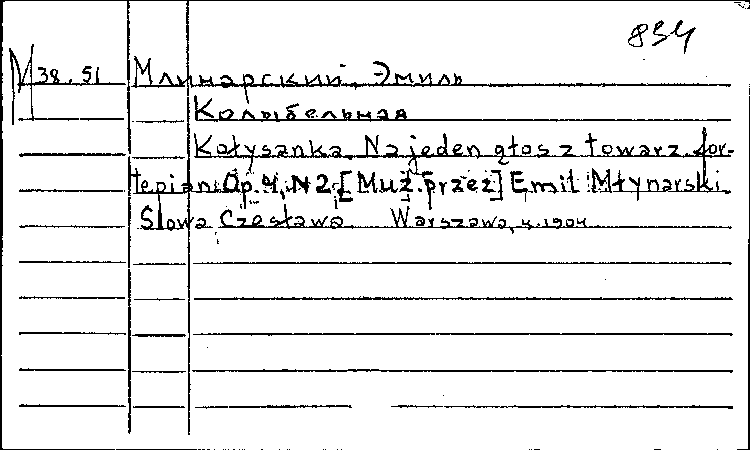 834
М 38.51 Млинарский, Эмиль
Колыбельная
Kołysanka. Na jeden głos z towarz. for-
tepianu Op. 4, N 2. [Muz. przez] Emil Młynarski.
Słowa Czesława. Warszawa, 1904